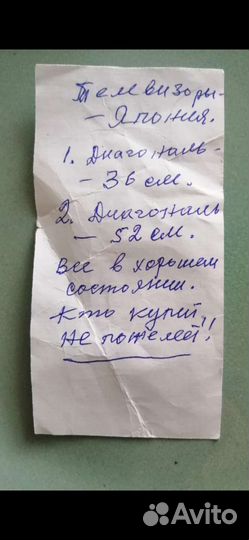 Телевизоры-
- Япония.
1. Диагональ-
- 36 см.
2. Диагональ
- 52 см.
Все в хорошем
состоянии.
Кто купит,
не пожелеет!
Avito